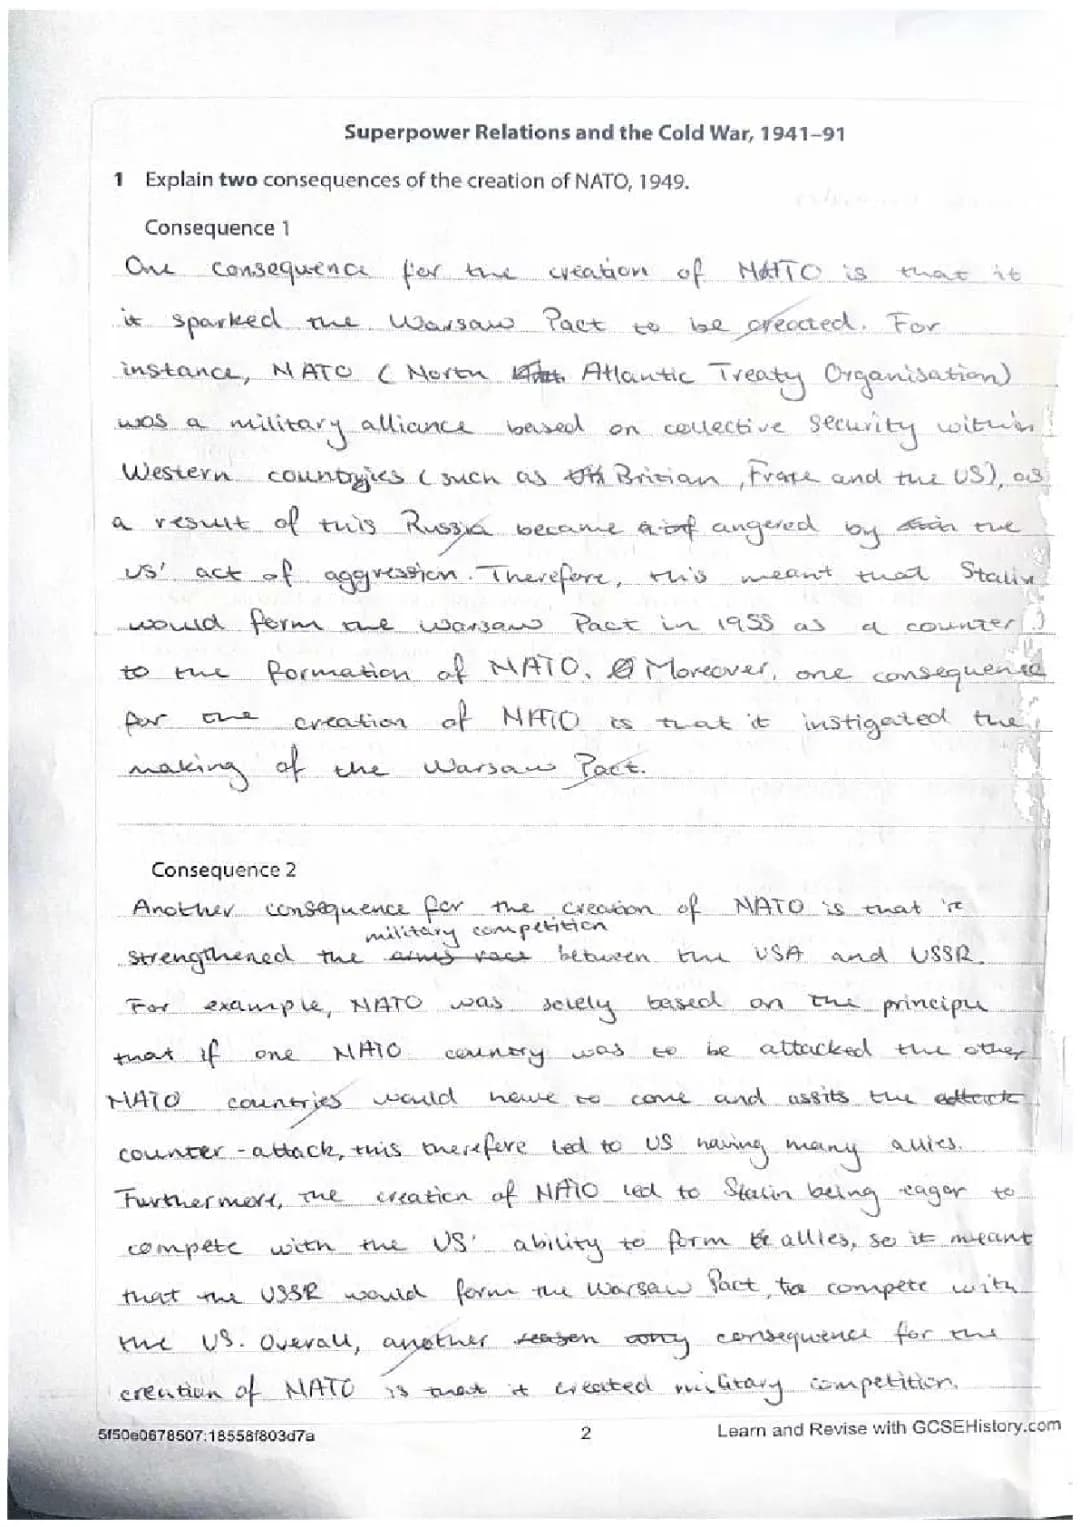 Superpower Relations and the Cold War, 1941–91
1 Explain two consequences of the creation of NATO, 1949.
Consequence 1
One consequence for the creation of NATO is that it
it sparked the Warsaw Pact to be creacted. For
instance, NATO (North Atlantic Treaty Organisation)
was a military alliance based on collective security within
Western countryies (such as Britian, France and the US), as
a result of this Russia became angered by the
US' act of aggression. Therefore, this meant that Stalin
would form the Warsaw Pact in 1955 as a counter
to the formation of NATO. Moreover, one consequence
for the creation of NATO is that it instigated the
making of the Warsaw Pact.
Consequence 2
Another consequence for the creation of NATO is that it
military competition
strengthened the arms race between the USA and USSR.
For example, NATO was solely based on the principle
that if one NATO country was to be attacked the other
NATO countries would have to come and assits the attack
counter-attack, this therefore led to US having many allies.
Furthermore, the creation of NATO led to Stalin being eager to
compete with the US' ability to form allies, so it meant
that the USSR would form the Warsaw Pact, to compete with
the US. Overall, another reason consequence for the
creation of NATO is that it created military competition.
5f50e0678507:18558f803d7a
2
Learn and Revise with GCSEHistory.com